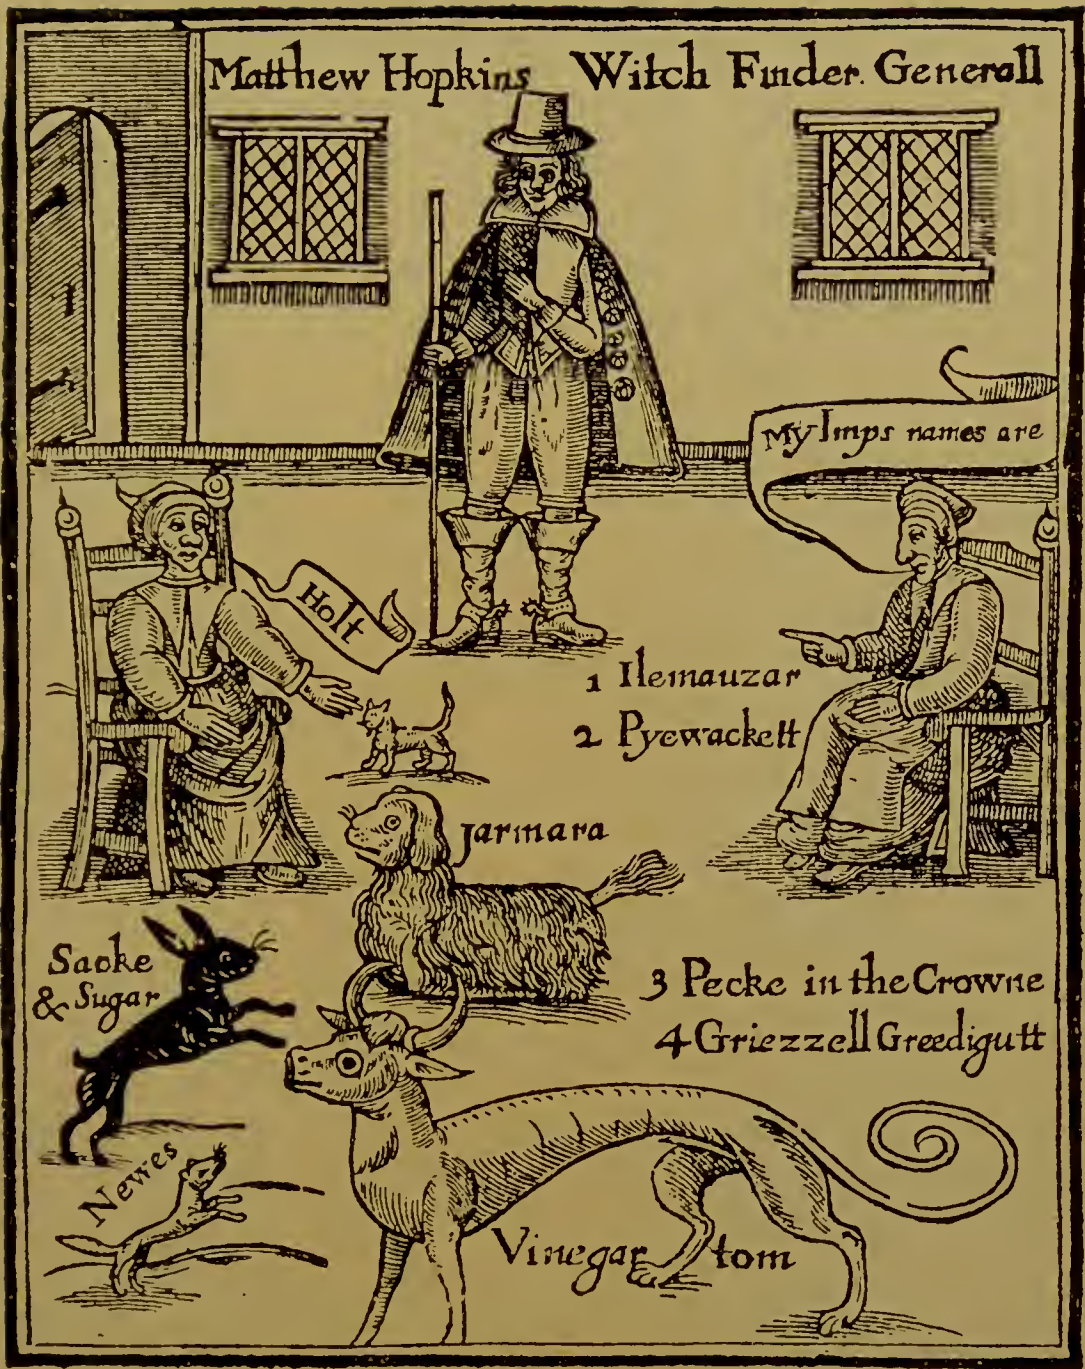 Matthew Hopkins Witch Finder. Generall
My Imps names are
Holt
1 Ilemauzar
2 Pyewackett
Jarmara
Sacke
& Sugar
3 Pecke in the Crowne
4 Griezzell Greedigutt
Newes
Vinegar tom